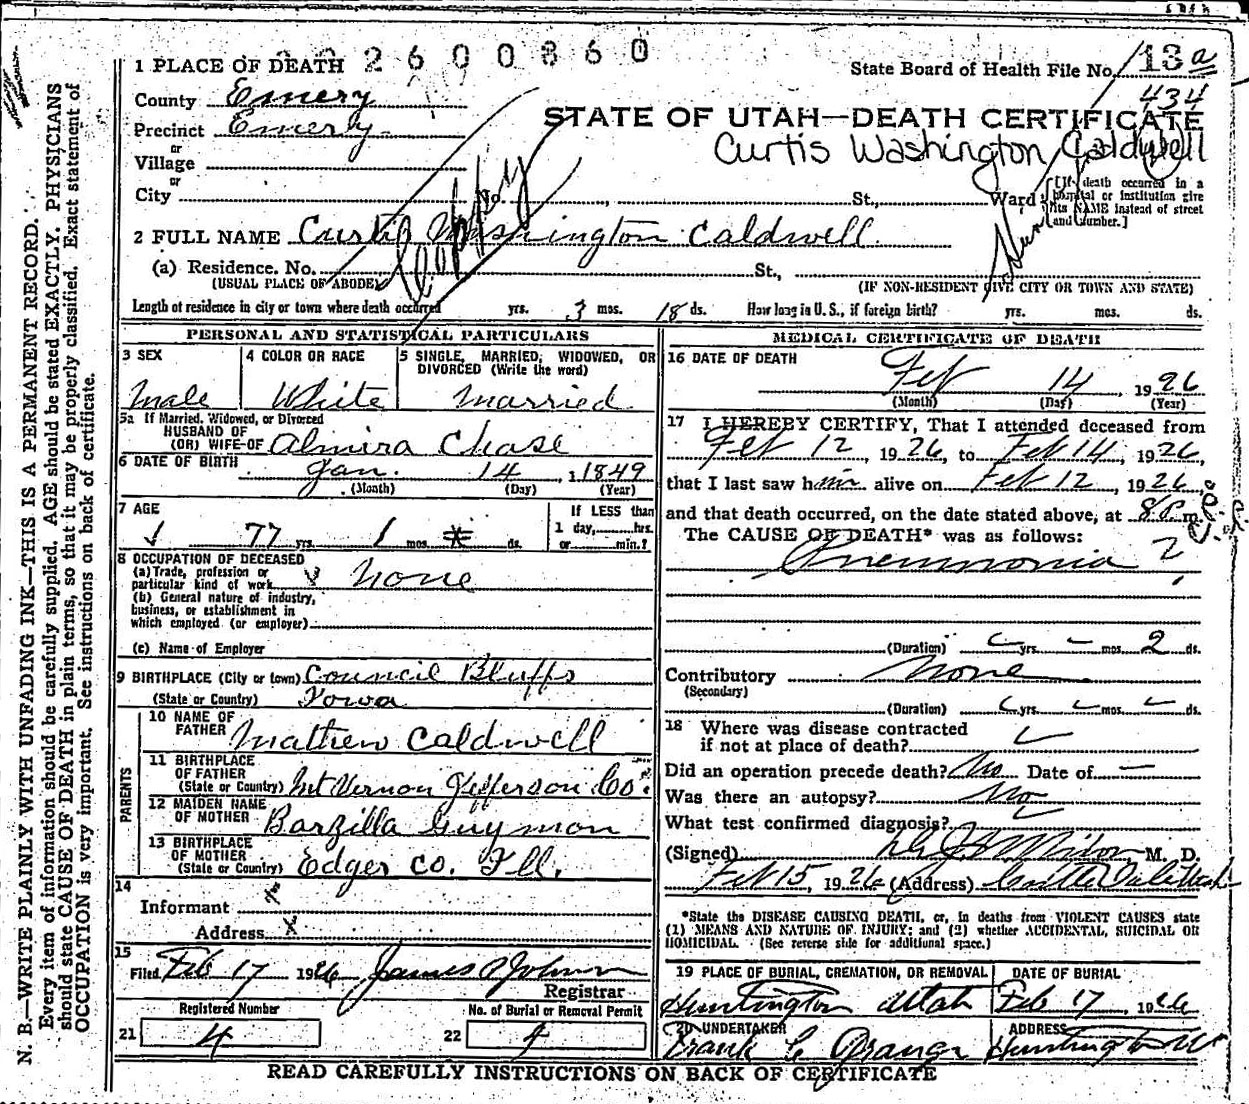 2600860
1 PLACE OF DEATH
State Board of Health File No. 13a
434
County Emery
STATE OF UTAH—DEATH CERTIFICATE
Precinct Emery
Curtis Washington Caldwell
or
Village
or
City No. St., Ward
[If death occurred in a hospital or institution give its NAME instead of street and number.]
Copy
2 FULL NAME Curtis Washington Caldwell
(a) Residence. No. St.,
(USUAL PLACE OF ABODE) (IF NON-RESIDENT GIVE CITY OR TOWN AND STATE)
Length of residence in city or town where death occurred yrs. 3 mos. 18 ds. How long in U. S., if foreign birth? yrs. mos. ds.
PERSONAL AND STATISTICAL PARTICULARS
3 SEX
Male
4 COLOR OR RACE
White
5 SINGLE, MARRIED, WIDOWED, OR
DIVORCED (Write the word)
Married
5a If Married, Widowed, or Divorced
HUSBAND OF
(OR) WIFE OF Almira Chase
6 DATE OF BIRTH Jan. 14, 1849
(Month) (Day) (Year)
7 AGE
77 yrs. 1 mos. ds.
If LESS than
1 day, hrs.
or min.?
8 OCCUPATION OF DECEASED
(a) Trade, profession or
particular kind of work None
(b) General nature of industry,
business, or establishment in
which employed (or employer)
(c) Name of Employer
9 BIRTHPLACE (City or town) Council Bluffs
(State or Country) Iowa
PARENTS
10 NAME OF
FATHER Mathew Caldwell
11 BIRTHPLACE
OF FATHER
(State or Country) Mt Vernon Jefferson Co.
12 MAIDEN NAME
OF MOTHER Barzilla Guymon
13 BIRTHPLACE
OF MOTHER
(State or Country) Edger Co. Ill.
14
Informant x
Address x
15
Filed Feb 17 1926 James Johnson
Registrar
Registered Number
21 4
No. of Burial or Removal Permit
22 4
MEDICAL CERTIFICATE OF DEATH
16 DATE OF DEATH
Feb 14 1926
(Month) (Day) (Year)
17 I HEREBY CERTIFY, That I attended deceased from
Feb 12, 1926, to Feb 14, 1926,
that I last saw him alive on Feb 12, 1926,
and that death occurred, on the date stated above, at 8 P. m.
The CAUSE OF DEATH* was as follows:
Pnemnonia ?
(Duration) yrs. mos. 2 ds.
Contributory None
(Secondary)
(Duration) yrs. mos. ds.
18 Where was disease contracted
if not at place of death?
Did an operation precede death? No Date of —
Was there an autopsy? No
What test confirmed diagnosis?
(Signed) , M. D.
Feb 15, 1926 (Address) Castle Dale Utah
*State the DISEASE CAUSING DEATH, or, in deaths from VIOLENT CAUSES state
(1) MEANS AND NATURE OF INJURY; and (2) whether ACCIDENTAL, SUICIDAL OR
HOMICIDAL. (See reverse side for additional space.)
19 PLACE OF BURIAL, CREMATION, OR REMOVAL
Huntington Utah
DATE OF BURIAL
Feb 17 1926
20 UNDERTAKER
Frank C
ADDRESS
Huntington Ut
READ CAREFULLY INSTRUCTIONS ON BACK OF CERTIFICATE
N. B.—WRITE PLAINLY WITH UNFADING INK—THIS IS A PERMANENT RECORD.
Every item of information should be carefully supplied. AGE should be stated EXACTLY. PHYSICIANS
should state CAUSE OF DEATH in plain terms, so that it may be properly classified. Exact statement of
OCCUPATION is very important. See instructions on back of certificate.